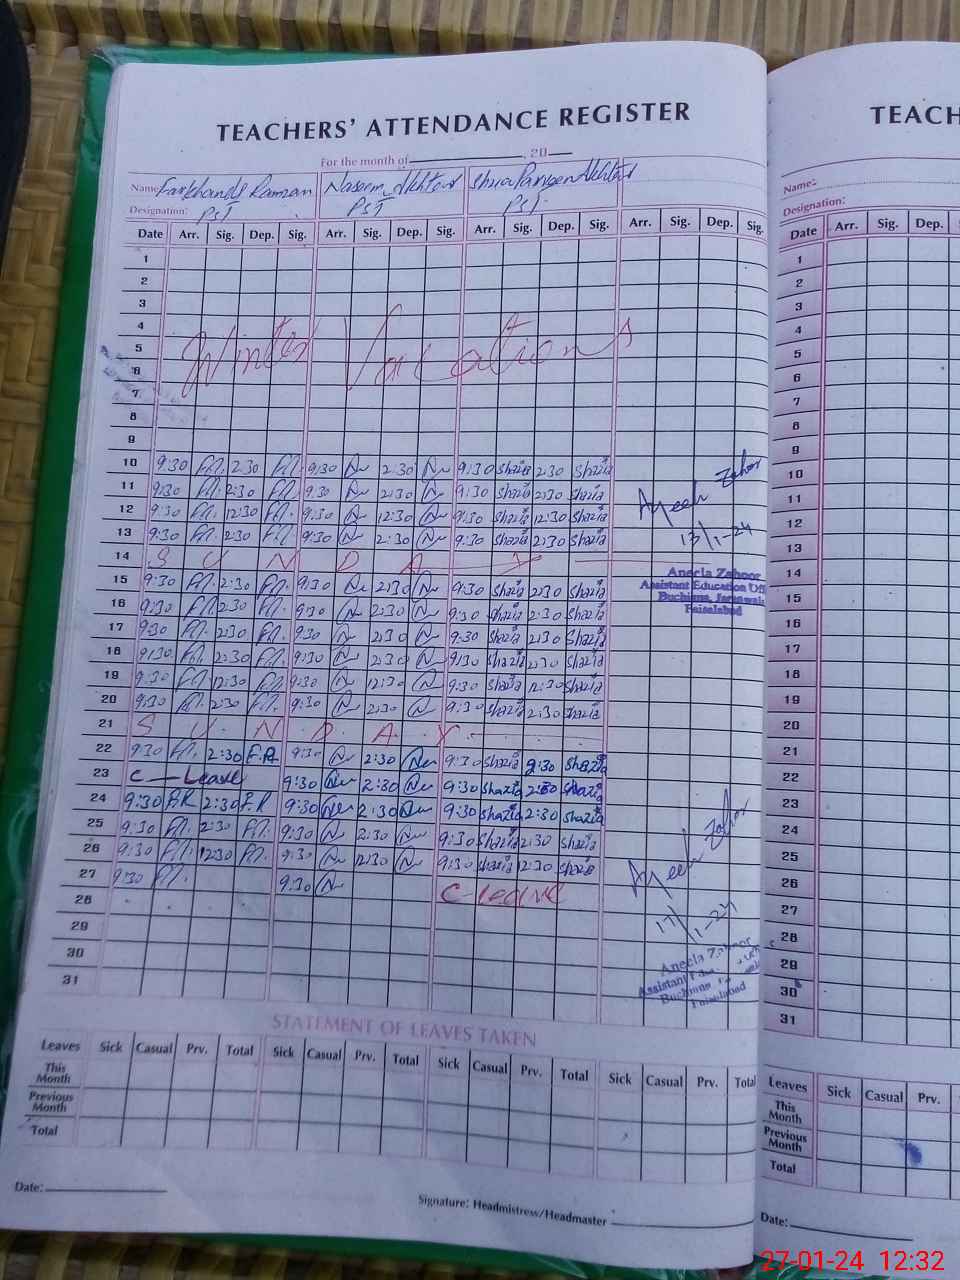 TEACHERS' ATTENDANCE REGISTER
For the month of , 20
Name Farkhanda Ramzan Naseem Akhtar Shazia Parveen Akhtar
Designation: PST PST PST
Date Arr. Sig. Dep. Sig. Arr. Sig. Dep. Sig. Arr. Sig. Dep. Sig. Arr. Sig. Dep. Sig.
1
2
3
4
5 Winter Vacations
6
7
8
9
10 9:30 2:30 9:30 2:30 9:30 Shazia 2:30 Shazia
11 9:30 2:30 9:30 2:30 9:30 Shazia 2:30 Shazia
12 9:30 12:30 9:30 12:30 9:30 Shazia 12:30 Shazia
13 9:30 2:30 9:30 2:30 9:30 Shazia 2:30 Shazia
13/1-24
14 S U N D A Y
15 9:30 2:30 9:30 2:30 9:30 Shazia 2:30 Shazia
Aneela Zahoor
Assistant Education Off
Buchiana, Jaranwala
Faisalabad
16 9:30 2:30 9:30 2:30 9:30 Shazia 2:30 Shazia
17 9:30 2:30 9:30 2:30 9:30 Shazia 2:30 Shazia
18 9:30 2:30 9:30 2:30 9:30 Shazia 2:30 Shazia
19 9:30 12:30 9:30 12:30 9:30 Shazia 12:30 Shazia
20 9:30 2:30 9:30 2:30 9:30 Shazia 2:30 Shazia
21 S U N D A Y
22 9:30 2:30 F.R 9:30 2:30 9:30 Shazia 2:30 Shazia
23 C-Leave 9:30 2:30 9:30 Shazia 2:30 Shazia
24 9:30 F.R 2:30 F.R 9:30 2:30 9:30 Shazia 2:30 Shazia
25 9:30 2:30 9:30 2:30 9:30 Shazia 2:30 Shazia
26 9:30 12:30 9:30 12:30 9:30 Shazia 12:30 Shazia
27 9:30 9:30 C-Leave
28
29
30
31
Aneela
Assistant
Buchiana
Faisalabad
STATEMENT OF LEAVES TAKEN
Leaves Sick Casual Prv. Total Sick Casual Prv. Total Sick Casual Prv. Total Sick Casual Prv. Total
This Month
Previous Month
Total
Date:
Signature: Headmistress/Headmaster
TEACH
Name:
Designation:
Date Arr. Sig. Dep.
1
2
3
4
5
6
7
8
9
10
11
12
13
14
15
16
17
18
19
20
21
22
23
24
25
26
27
28
29
30
31
Leaves Sick Casual Prv.
This Month
Previous Month
Total
Date:
27-01-24 12:32